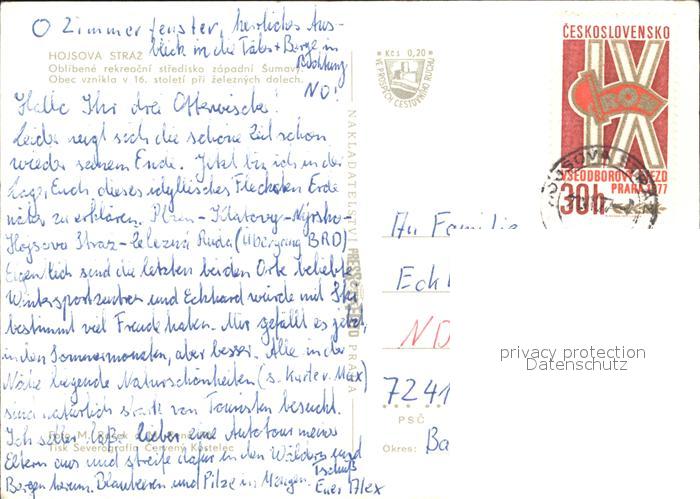 O Zimmerfenster, herrliches Aus-
blick in die Täler + Berge in
Richtung
NO!
HOJSOVA STRÁŽ
Oblíbené rekreační středisko západní Šumavy.
Obec vznikla v 16. století při železných dolech.
Hallo Ihr drei
Leider neigt sich die schöne Zeit schon
wieder seinem Ende. Jetzt bin ich in der
Lage, Euch dieses idyllische Fleckchen Erde
näher zu erklären. Plzen - Klatovy - Nyrsko -
Hojsova Straz - Železná Ruda (Übergang BRD)
Eigentlich sind die letzten beiden Orte beliebte
Wintersportzentren und Eckhard würde mit Ski
bestimmt viel Freude haben. Mir gefällt es jetzt,
in den Sommermonaten, aber besser. Alle in der
Nähe liegende Naturschönheiten (s. Karte v. Max)
sind natürlich stark von Touristen besucht.
Ich selber lieber eine Autotour meiner
Eltern aus und streife dafür in den Wäldern und
Bergen herum. Blaubeeren und Pilze in Mengen.
Tschüß
Euer Alex
Tisk Severografia Červený Kostelec
NAKLADATELSTVÍ PRESSFOTO PRAHA
Kčs 0,20
VE PROSPĚCH CESTOVNÍHO RUCHU
ČESKOSLOVENSKO
IX
ROH
VŠEODBOROVÝ SJEZD
PRAHA 1977
30h
HOJSOVA STRÁŽ
An Familie
Eck
ND
7241
PSČ
Okres: Ba
privacy protection
Datenschutz